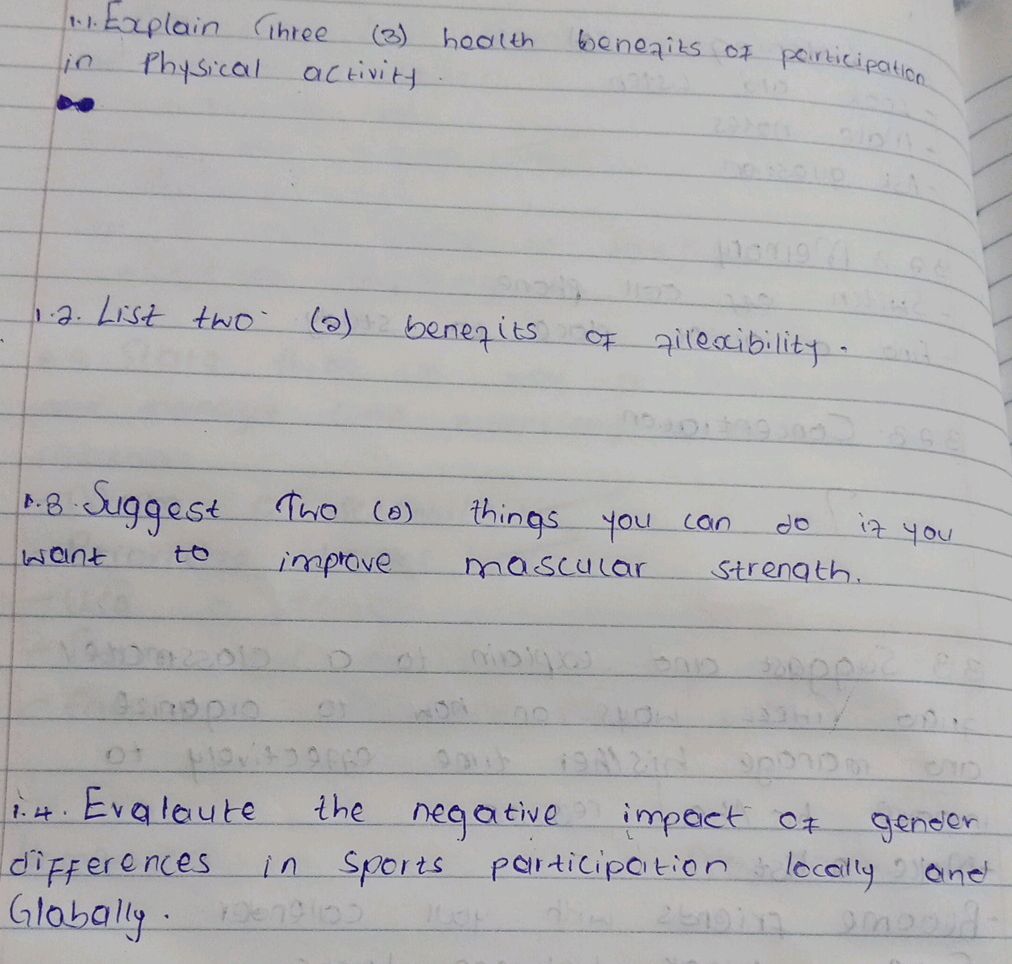 1.1. Explain Three (3) health benefits of participation
in Physical activity.
1.2. List two (2) benefits of flexibility.
1.3. Suggest Two (2) things you can do if you
want to improve mascular strength.
1.4. Evalaute the negative impact of gender
differences in sports participation locally and
Globally.